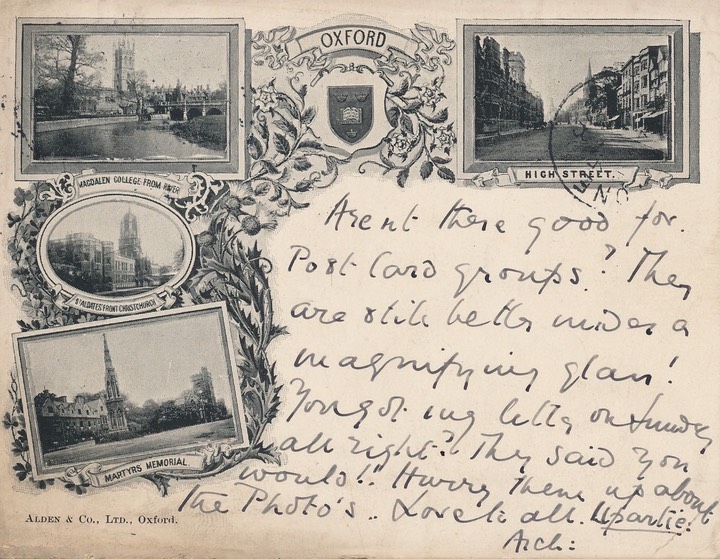 OXFORD
HIGH STREET.
MAGDALEN COLLEGE FROM RIVER
ST ALDATES FRONT CHRISTCHURCH
MARTYRS MEMORIAL.
Arent these good for.
Post Card groups? They
are still better under a
magnifying glass!
You got my letter on Sunday
all right? They said you
would!! Hurry them up about
the Photo's.. Love to all.
Arch:
ALDEN & Co., LTD., Oxford.